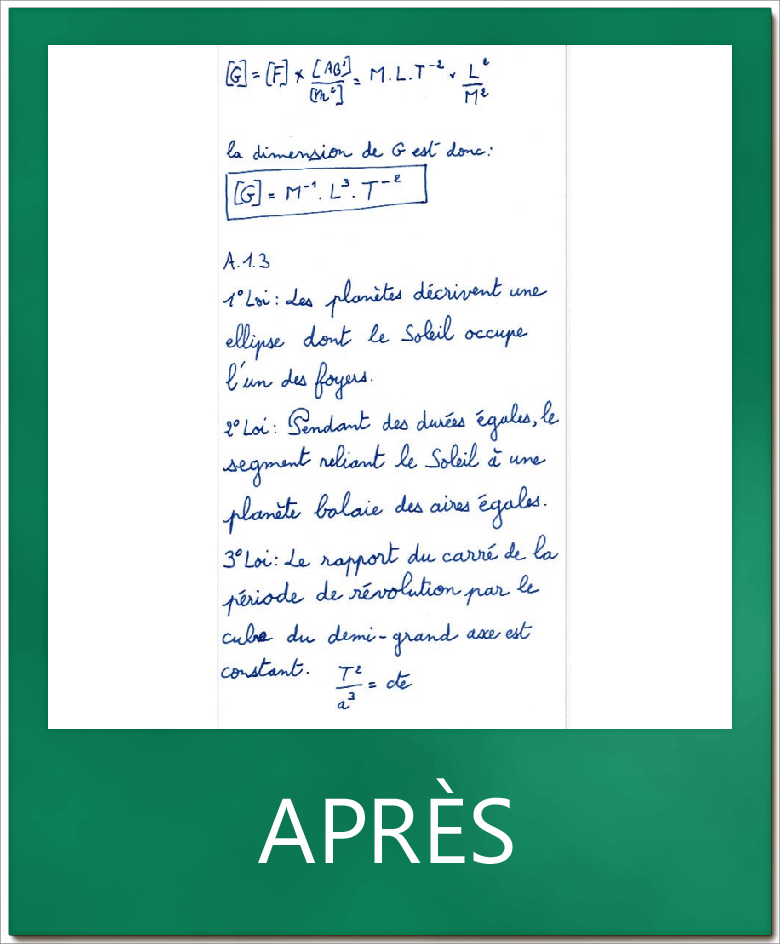 [G] = [F] × [AB²]/[m²] = M.L.T⁻² × L²/M²
la dimension de G est donc:
[G] = M⁻¹. L³. T⁻²
A.1.3
1° Loi : Les planètes décrivent une
ellipse dont le Soleil occupe
l'un des foyers.
2° Loi : Pendant des durées égales, le
segment reliant le Soleil à une
planète balaie des aires égales.
3° Loi : Le rapport du carré de la
période de révolution par le
cube du demi-grand axe est
constant. T²/a³ = cte
APRÈS